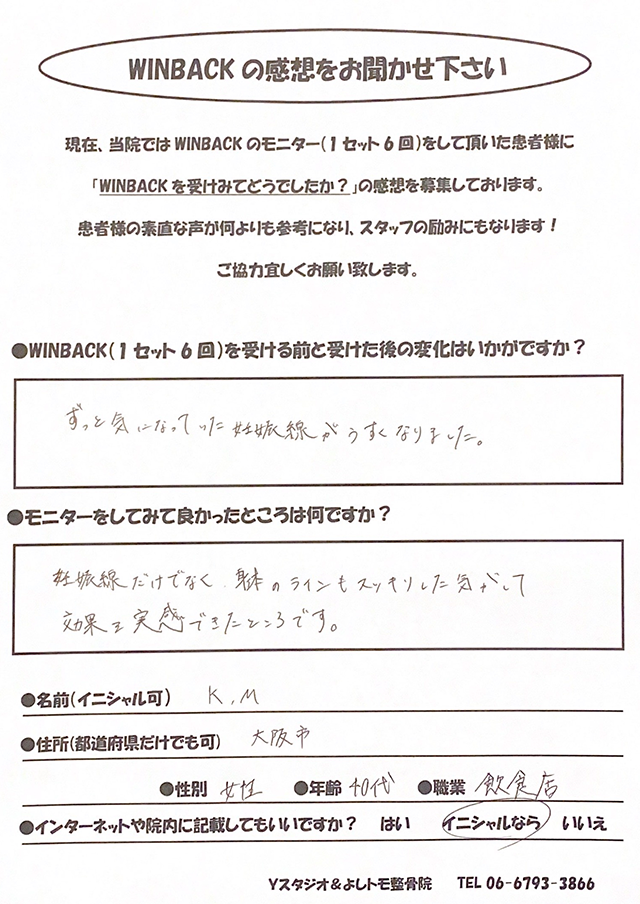 WINBACKの感想をお聞かせ下さい
現在、当院ではWINBACKのモニター(1セット6回)をして頂いた患者様に
「WINBACKを受けみてどうでしたか?」の感想を募集しております。
患者様の素直な声が何よりも参考になり、スタッフの励みにもなります!
ご協力宜しくお願い致します。
●WINBACK(1セット6回)を受ける前と受けた後の変化はいかがですか?
ずっと気になっていた妊娠線がうすくなりました。
●モニターをしてみて良かったところは何ですか?
妊娠線だけでなく、身体のラインもスッキリした気がして
効果を実感できたところです。
●名前(イニシャル可) K.M
●住所(都道府県だけでも可) 大阪市
●性別 女性 ●年齢 40代 ●職業 飲食店
●インターネットや院内に記載してもいいですか? はい イニシャルなら いいえ
Yスタジオ&よしトモ整骨院 TEL 06-6793-3866